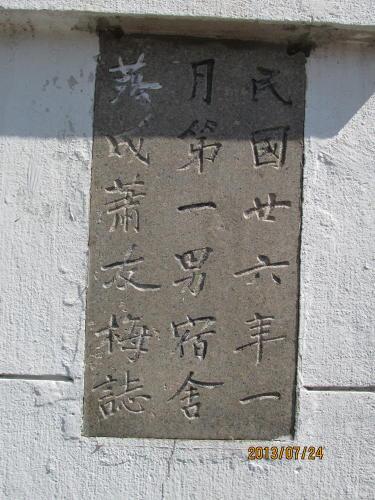 民國廿六年一
月第一男宿舍
落成蕭友梅誌
2013/07/24